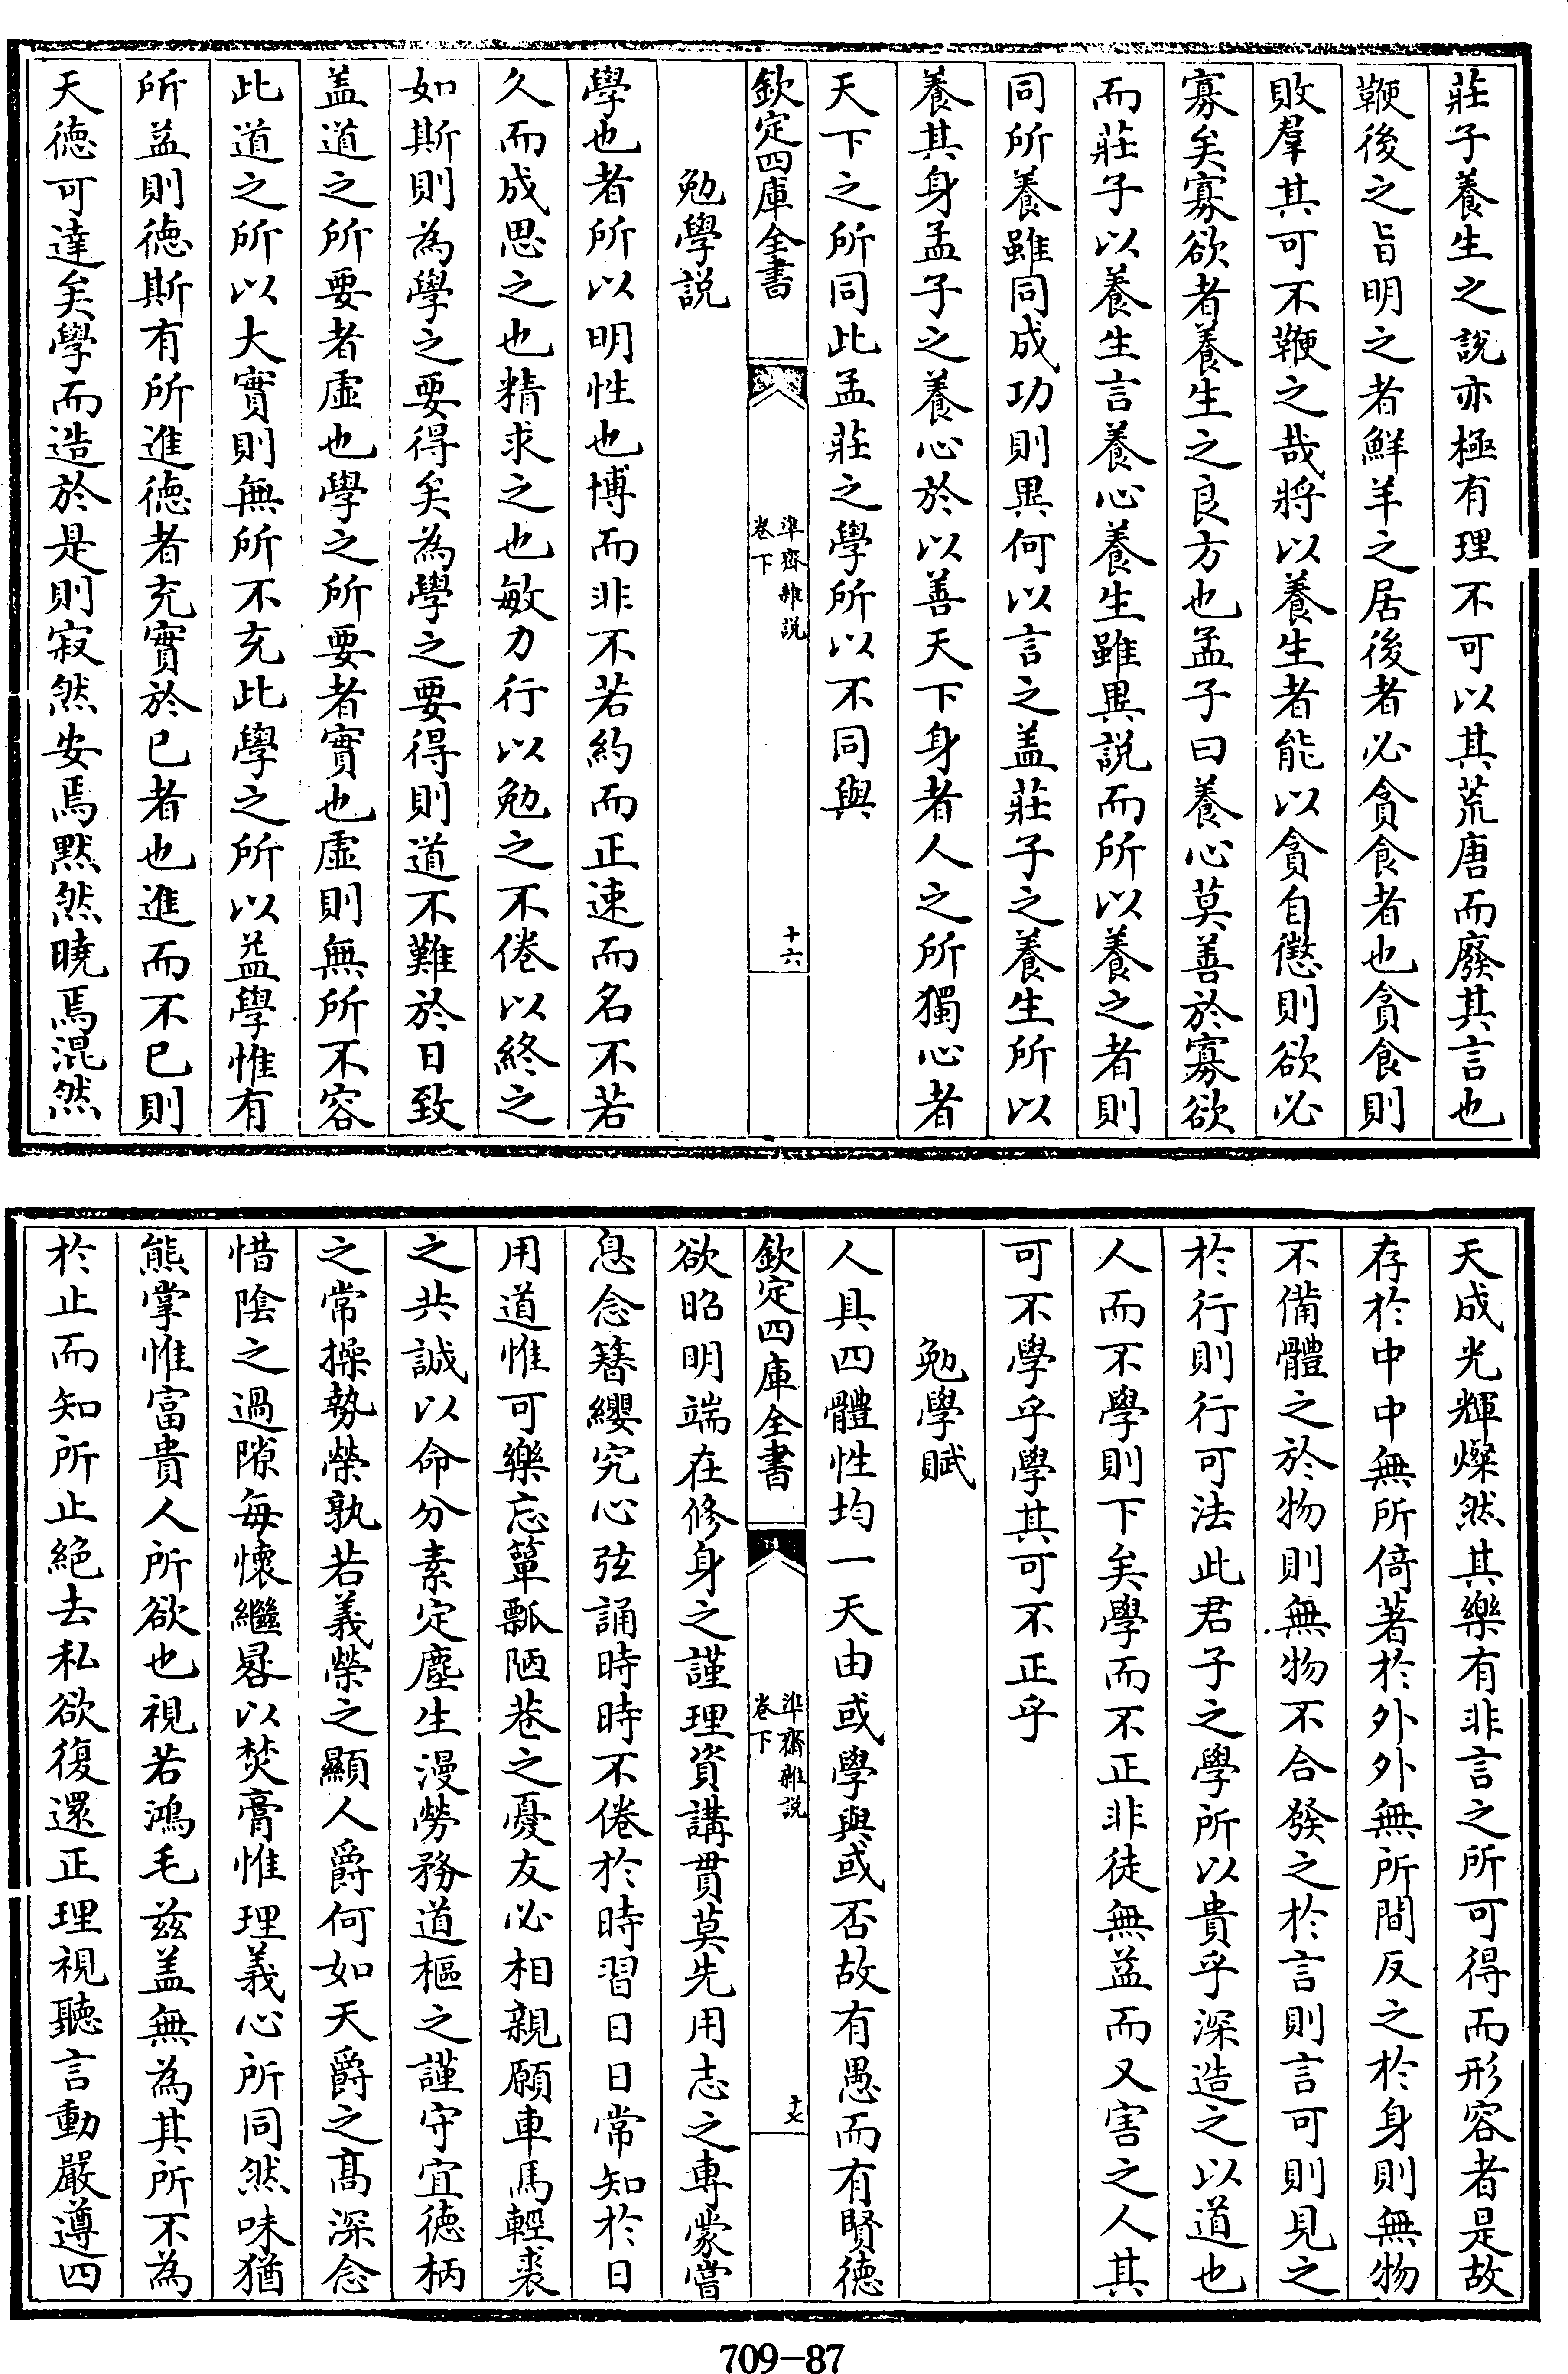 莊子養生之說亦極有理不可以其荒唐而廢其言也
鞭後之旨明之者鮮羊之居後者必貪食者也貪食則
敗羣其可不鞭之哉將以養生者能以貪自懲則欲必
寡矣寡欲者養生之良方也孟子曰養心莫善於寡欲
而莊子以養生言養心養生雖異說而所以養之者則
同所養雖同成功則異何以言之盖莊子之養生所以
養其身孟子之養心於以善天下身者人之所獨心者
天下之所同此孟莊之學所以不同與
欽定四庫全書
準齋雜說
卷下
十六
勉學說
學也者所以明性也博而非不若約而正速而名不若
久而成思之也精求之也敏力行以勉之不倦以終之
如斯則為學之要得矣為學之要得則道不難於日致
盖道之所要者虛也學之所要者實也虛則無所不容
此道之所以大實則無所不充此學之所以益學惟有
所益則徳斯有所進徳者充實於已者也進而不已則
天徳可達矣學而造於是則寂然安焉黙然曉焉混然
天成光輝燦然其樂有非言之所可得而形容者是故
存於中中無所倚著於外外無所間反之於身則無物
不備體之於物則無物不合發之於言則言可則見之
於行則行可法此君子之學所以貴乎深造之以道也
人而不學則下矣學而不正非徒無益而又害之人其
可不學乎學其可不正乎
勉學賦
人具四體性均一天由或學與或否故有愚而有賢徳
欽定四庫全書
準齋雜說
卷下
十七
欲昭明端在修身之謹理資講貫莫先用志之専蒙嘗
息念簪纓究心弦誦時時不倦於時習日日常知於日
用道惟可樂忘簞瓢陋巷之憂友必相親願車馬輕裘
之共誠以命分素定塵生漫勞務道樞之謹守宜徳柄
之常操勢榮孰若義榮之顯人爵何如天爵之髙深念
惜陰之過隙每懷繼晷以焚膏惟理義心所同然味猶
熊掌惟富貴人所欲也視若鴻毛兹盖無為其所不為
於止而知所止絕去私欲復還正理視聽言動嚴遵四
709-87